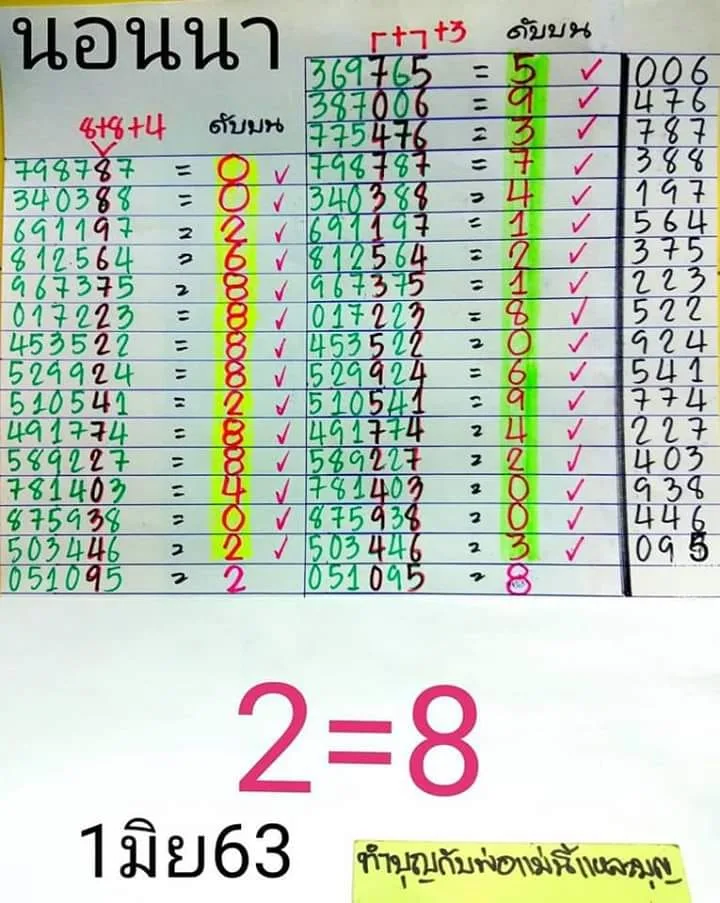 นอนนา
8+8+4 ดับบน
798787 = 0 ✓
340388 = 0 ✓
691197 = 2 ✓
812564 = 6 ✓
967375 = 8 ✓
017223 = 8 ✓
453522 = 8 ✓
529924 = 8 ✓
510541 = 2 ✓
491774 = 8 ✓
589227 = 8 ✓
781403 = 4 ✓
875938 = 0 ✓
503446 = 2 ✓
051095 = 2
┌+┐+3 ดับบน
369765 = 5 ✓ 006
387006 = 9 ✓ 476
775476 = 3 ✓ 787
798787 = 7 ✓ 388
340388 = 4 ✓ 197
691197 = 1 ✓ 564
812564 = 2 ✓ 375
967375 = 1 ✓ 223
017223 = 8 ✓ 522
453522 = 0 ✓ 924
529924 = 6 ✓ 541
510541 = 9 ✓ 774
491774 = 4 ✓ 227
589227 = 2 ✓ 403
781403 = 0 ✓ 938
875938 = 0 ✓ 446
503446 = 3 ✓ 095
051095 = 8
2=8
1มิย63
ทำบุญกับพ่อแม่นี้แหละบุญ